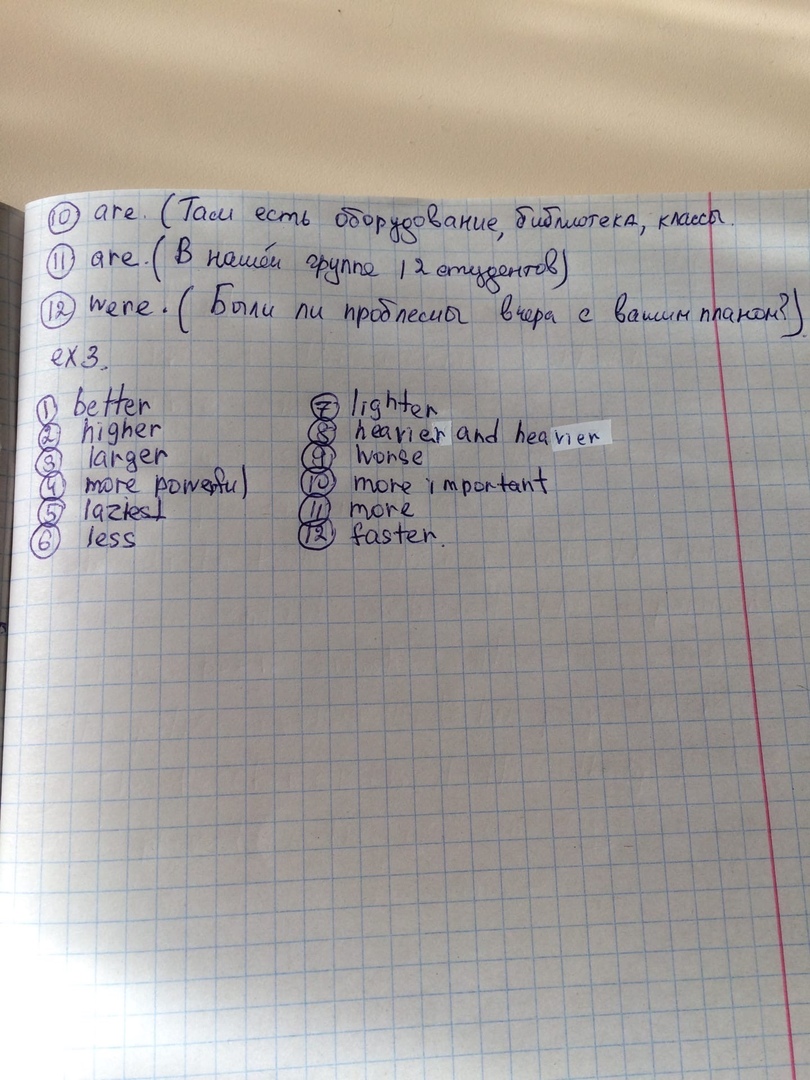 10 are. (Там есть оборудование, библиотека, классы.
11 are. (В нашей группе 12 студентов)
12 were. (Были ли проблемы вчера с вашим планом?)
ex 3.
1 better
2 higher
3 larger
4 more powerful
5 laziest
6 less
7 lighter
8 heavier and heavier
9 worse
10 more important
11 more
12 faster.